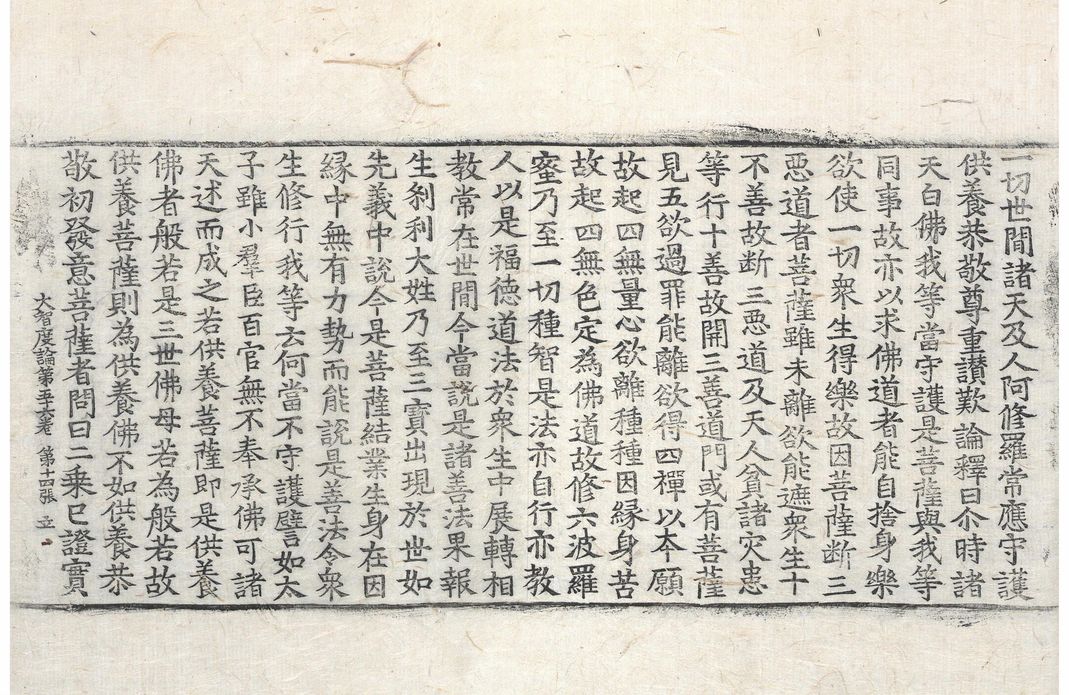 一切世間諸天及人阿修羅常應守護
供養恭敬尊重讃歎論釋曰尒時諸
天白佛我等當守護是菩薩與我等
同事故亦以求佛道者能自捨身樂
欲使一切衆生得樂故因菩薩断三
惡道者菩薩雖未離欲能遮衆生十
不善故断三惡道及天人貧諸灾患
等行十善故開三善道門或有菩薩
見五欲過罪能離欲得四禪以夲願
故起四無量心欲離種種因緣身苦
故起四無色定為佛道故修六波羅
蜜乃至一切種智是法亦自行亦教
人以是福德道法於衆生中展轉相
教常在世間今當說是諸善法果報
生剎利大姓乃至三寶出現於世如
先義中說今是菩薩結業生身在因
緣中無有力勢而能說是善法令衆
生修行我等云何當不守護譬如太
子雖小羣臣百官無不奉承佛可諸
天述而成之若供養菩薩即是供養
佛者般若是三世佛母若為般若故
供養菩薩則為供養佛不如供養恭
敬初發意菩薩者問曰二乘已證實
大智度論第五十六卷　第十四張　立